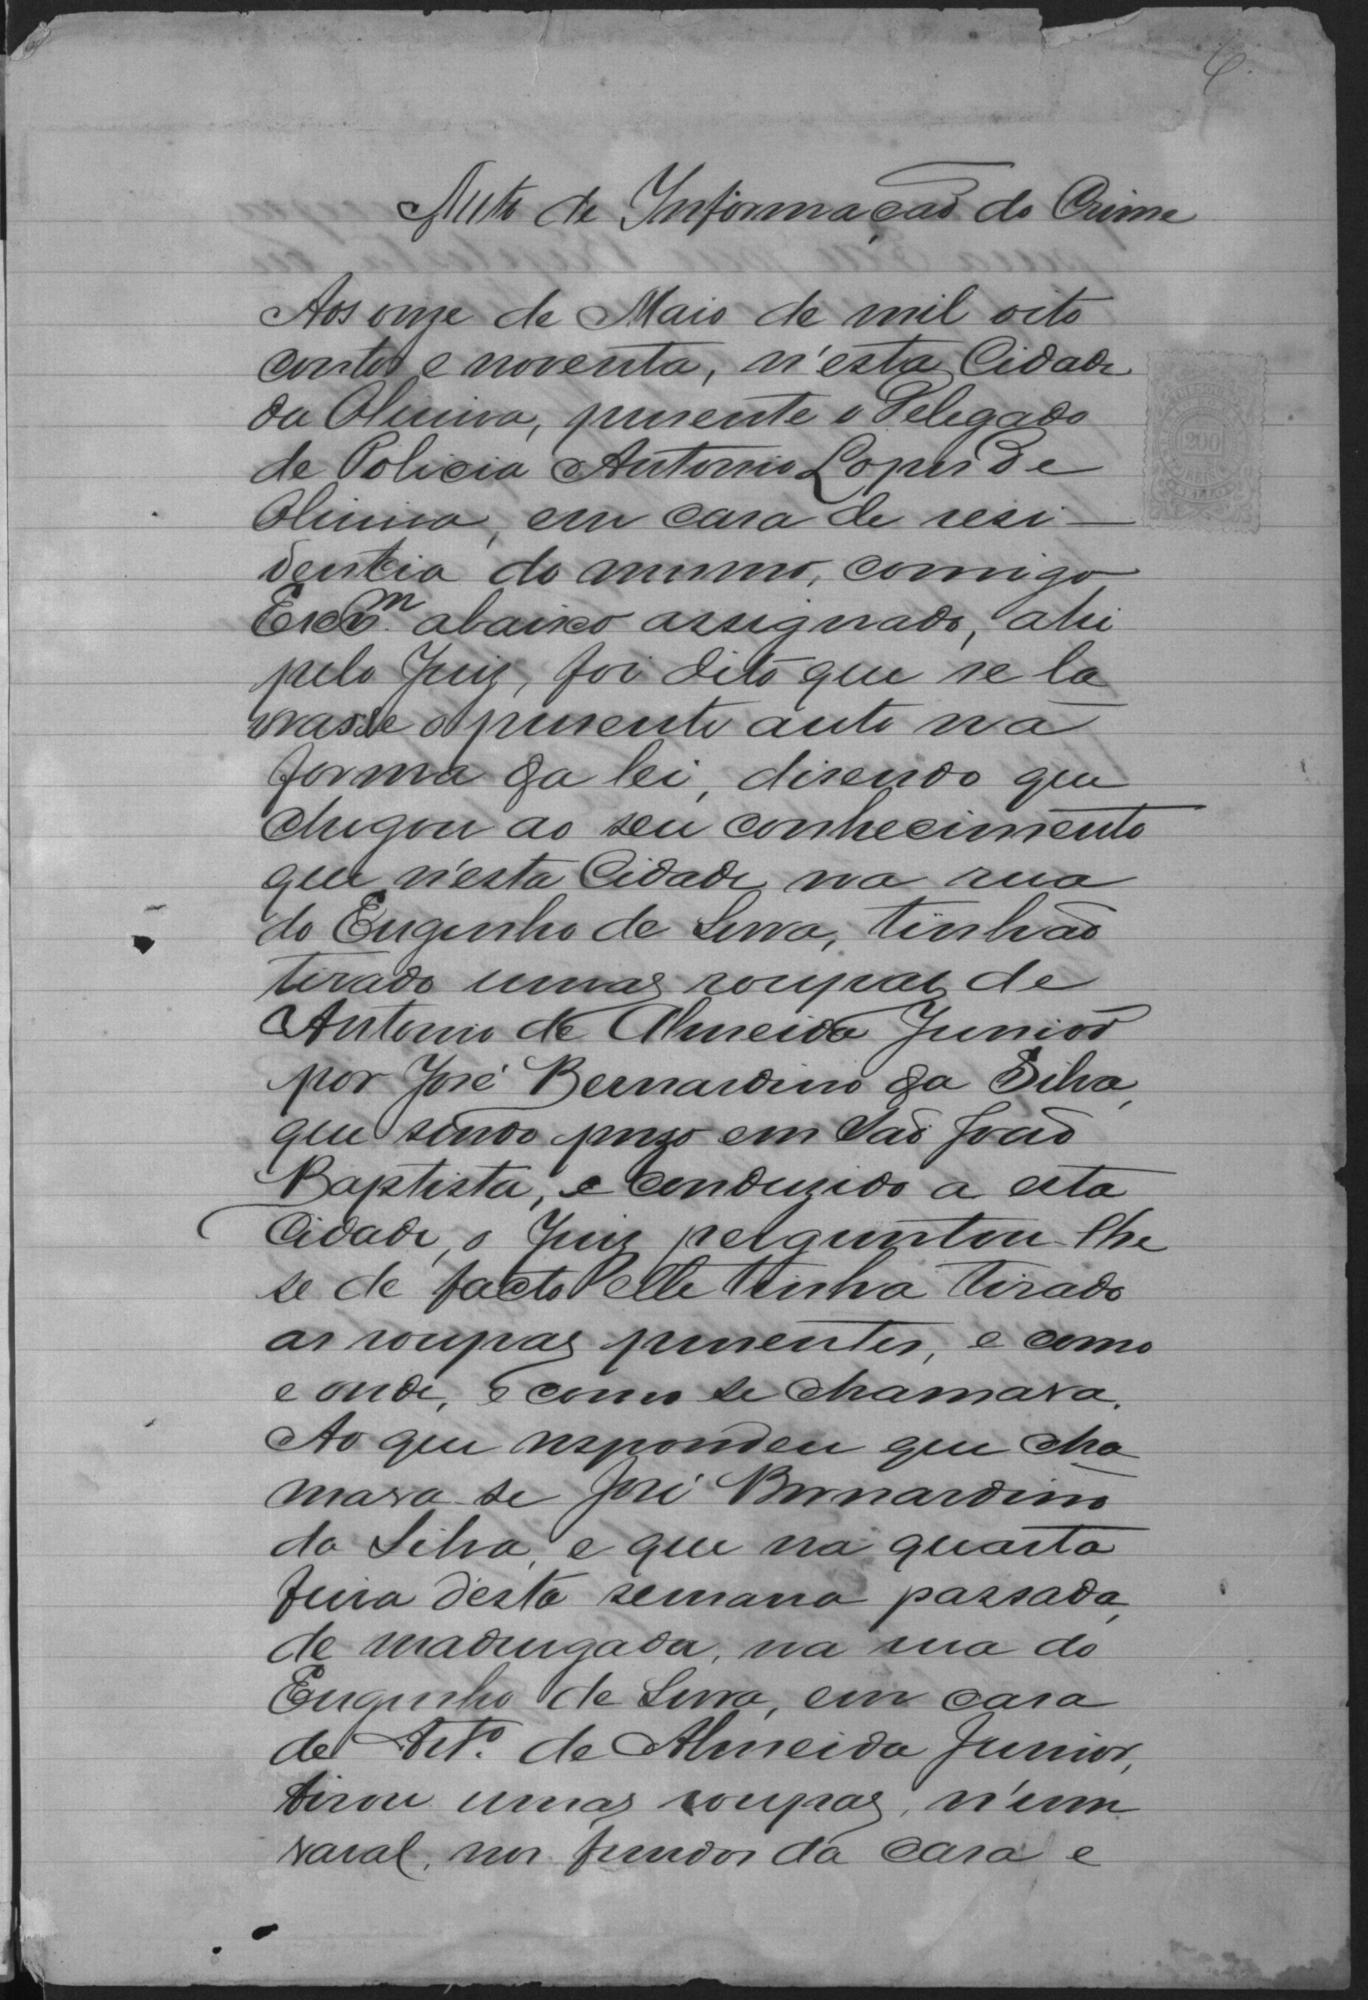 6
Auto de Informação do Crime
Aos onze de Maio de mil oito
centos e noventa, n'esta Cidade
da Oliveira, presente o Delegado
de Policia Antonio Lopes de
Oliveira, em casa de resi-
dentcia do mesmo, comigo
Escr.m abaixo assignado, ahi
pelo Juiz, foi dito que se la
vrasse o presente auto na
forma da lei, disendo que
chegou ao seu conhecimento
que n'esta Cidade na rua
do Engenho de Serra, tinhão
tirado umas roupas de
Antonio de Almeida Junior
por José Bernardino da Silva,
que sendo prezo em São João
Baptista, e conduzido a esta
Cidade, o Juiz perguntou-lhe
se de facto elle tinha tirado
as roupas presentes, e como
e onde, e como se chamava.
Ao que respondeu que cha
mava-se José Bernardino
da Silva, e que na quarta
feira desta semana passada,
de madrugada, na rua do
Engenho de Serra, em casa
de Ant.º de Almeida Junior,
tirou umas roupas, n'um
varal, nos fundos da casa e
200
REIS